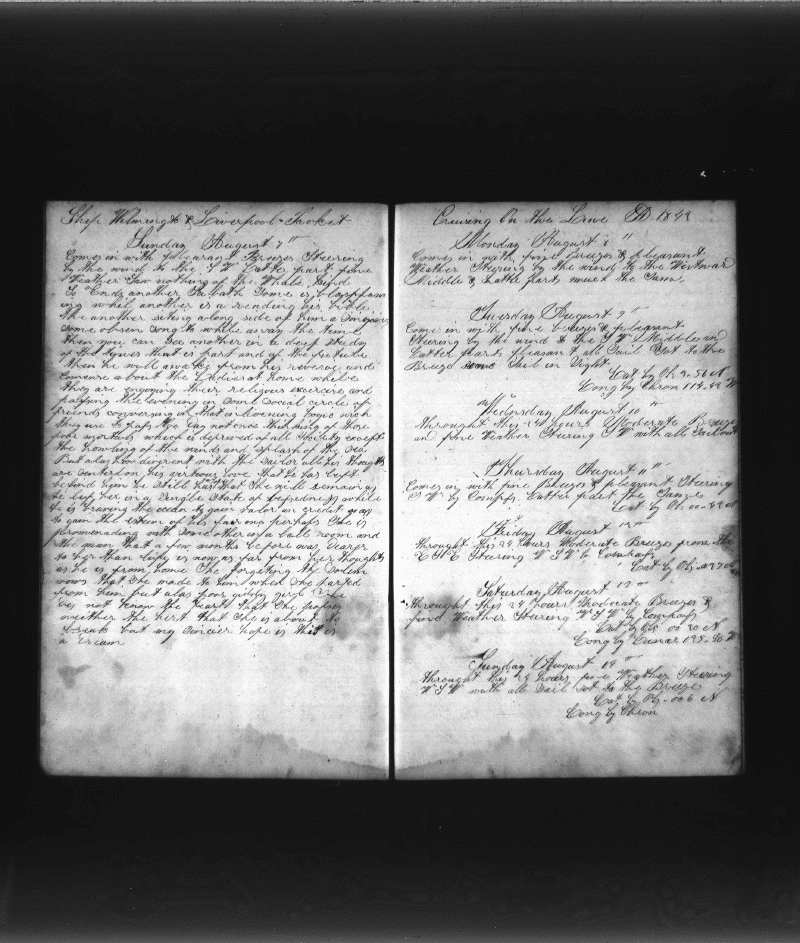 Ship Wilmingto & Liverpool Packet
Sunday August 7"
Comes in with pleasant Breezes Steering
by the wind to the S W Latter part fine
Weather Saw nothing of the Whale kind
So Ends another Sabath Some is blasphem
ing whil another is a reading his Bible
the another siting along side of him a Singing
some obsen Song to while away the time
then you can See another in a deep Study
of the times that is part and of the future
then he will awake from his reverie and
comence about the Ladies at home while
they are enjoying their religious exercise and
passing the evening in Some Social circle of
friends conversing on that in evening topic wich
they use to pass Aye Lay not once thinking of those
poor mortals which is deprived of all Society except
the howling of the winds and Splash of the Sea
But alas how divigent with the Sailor all his thoughts
are Sentered on his virtuous love that he has Left
behind him he Still that She will remain as
he left her in a Single State of while
he is braving the ocean to gain and credit
to gain the esteem of his fair one perhaps She is
promenading with Some other in a ball room and
the man that a few months before was dearer
to her than Life is now as far from her thoughts
as he is from home She forgeting the Solem
vows that She made to him when She parted
from him but alas poor girl She
dos not know the hearts that She
neither the hert that She is about to
break but my Sincier hope is this is
a dream
Cruising On the Line AD 1842
Monday August 8"
Comes in with fine Breezes & pleasant
Weather Steering by the wind to the Westwar
Middle & Latter parts much the Same
Tuesday August 9"
Come in with fine breezes & pleasant
Steering by the wind to the S W Middle an
Latter parts pleasant all Sail Set to the
Breeze Some Sail in Sight
Lat by Ob 2.50 N
Long by Chron 119.42 W
Wednesday August 10"
throught this 24 hours Moderate Breeze
an fine Weather Steering S W with all Sail out
Thursday August 11"
Comes in with fine Breezes & pleasant Steering
S W by Compass Latter part the Same
Lat by Ob
Friday August 12"
throught this 24 hours Moderate Breezes from the
E S E Steering W S W by Compass
Lat by Ob
Saturday August 13"
throught this 24 hours Moderate Breezes &
fine Weather Steering W S W by Compass
Lat by Ob 00 20 N
Long by Lunar 125-40 W
Sunday August 14"
throught this 24 hours fine Weather Steering
W S W with all Sail Set to the Breeze
Lat by Ob-006 N
Long by Chron